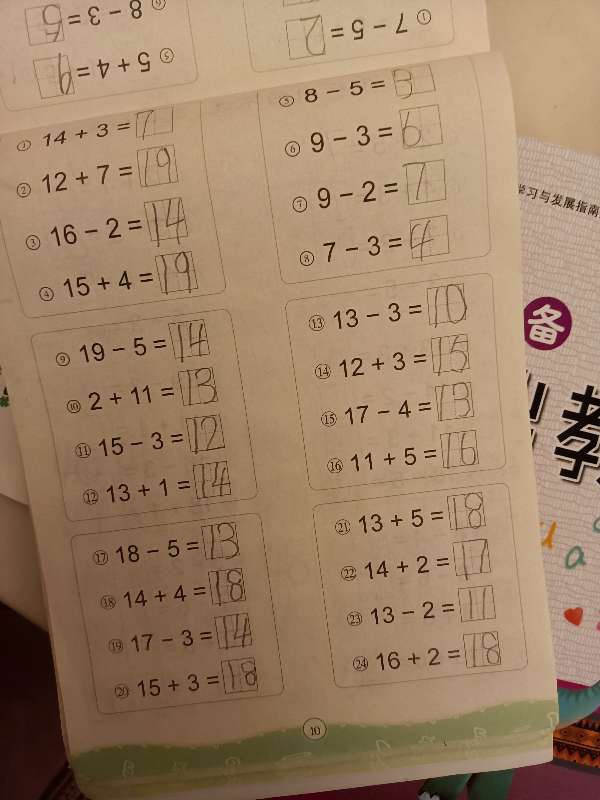 ⑥ 8 − 3 = 5
① 7 − 5 = 2
⑤ 5 + 4 = 9
① 14 + 3 = 7
② 12 + 7 = 19
③ 16 − 2 = 14
④ 15 + 4 = 19
⑤ 8 − 5 = 3
⑥ 9 − 3 = 6
⑦ 9 − 2 = 7
⑧ 7 − 3 = 4
⑨ 19 − 5 = 14
⑩ 2 + 11 = 13
⑪ 15 − 3 = 12
⑫ 13 + 1 = 14
⑬ 13 − 3 = 10
⑭ 12 + 3 = 15
⑮ 17 − 4 = 13
⑯ 11 + 5 = 16
⑰ 18 − 5 = 13
⑱ 14 + 4 = 18
⑲ 17 − 3 = 14
⑳ 15 + 3 = 18
㉑ 13 + 5 = 18
㉒ 14 + 2 = 17
㉓ 13 − 2 = 11
㉔ 16 + 2 = 18
10
学习与发展指南
备
教
u a